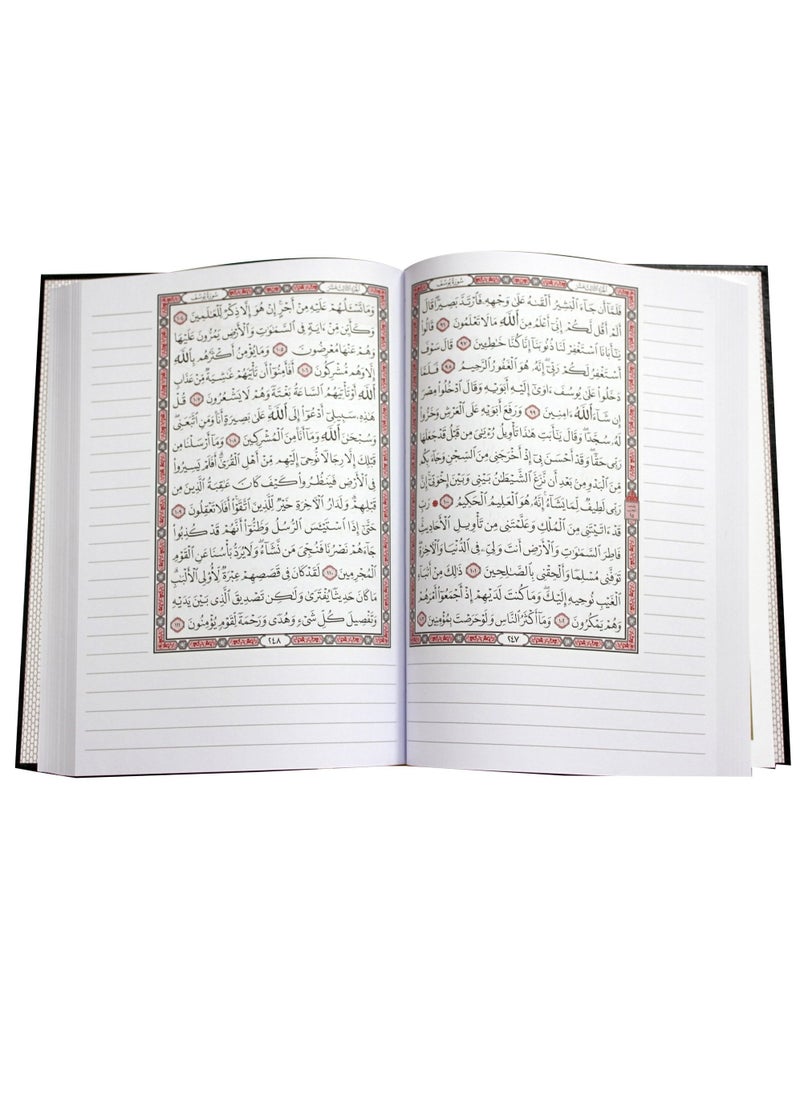 سُورَةُ يُوسُفَ
الجُزْءُ الثَّالِثَ عَشَرَ
فَلَمَّا أَن جَاءَ الْبَشِيرُ أَلْقَىٰهُ عَلَىٰ وَجْهِهِ فَارْتَدَّ بَصِيرًا قَالَ
أَلَمْ أَقُل لَّكُمْ إِنِّي أَعْلَمُ مِنَ اللَّهِ مَا لَا تَعْلَمُونَ ٩٦ قَالُوا
يَٰأَبَانَا اسْتَغْفِرْ لَنَا ذُنُوبَنَا إِنَّا كُنَّا خَٰطِـِٔينَ ٩٧ قَالَ سَوْفَ
أَسْتَغْفِرُ لَكُمْ رَبِّي إِنَّهُ هُوَ الْغَفُورُ الرَّحِيمُ ٩٨ فَلَمَّا
دَخَلُوا عَلَىٰ يُوسُفَ ءَاوَىٰ إِلَيْهِ أَبَوَيْهِ وَقَالَ ادْخُلُوا مِصْرَ
إِن شَاءَ اللَّهُ ءَامِنِينَ ٩٩ وَرَفَعَ أَبَوَيْهِ عَلَى الْعَرْشِ وَخَرُّوا
لَهُ سُجَّدًا وَقَالَ يَٰأَبَتِ هَٰذَا تَأْوِيلُ رُءْيَٰيَ مِن قَبْلُ قَدْ جَعَلَهَا
رَبِّي حَقًّا وَقَدْ أَحْسَنَ بِي إِذْ أَخْرَجَنِي مِنَ السِّجْنِ وَجَاءَ بِكُم
مِّنَ الْبَدْوِ مِن بَعْدِ أَن نَّزَغَ الشَّيْطَٰنُ بَيْنِي وَبَيْنَ إِخْوَتِي إِنَّ
رَبِّي لَطِيفٌ لِّمَا يَشَاءُ إِنَّهُ هُوَ الْعَلِيمُ الْحَكِيمُ ١٠٠ رَبِّ
قَدْ ءَاتَيْتَنِي مِنَ الْمُلْكِ وَعَلَّمْتَنِي مِن تَأْوِيلِ الْأَحَادِيثِ
فَاطِرَ السَّمَٰوَٰتِ وَالْأَرْضِ أَنتَ وَلِيِّ فِي الدُّنْيَا وَالْءَاخِرَةِ
تَوَفَّنِي مُسْلِمًا وَأَلْحِقْنِي بِالصَّٰلِحِينَ ١٠١ ذَٰلِكَ مِنْ أَنبَاءِ
الْغَيْبِ نُوحِيهِ إِلَيْكَ وَمَا كُنتَ لَدَيْهِمْ إِذْ أَجْمَعُوا أَمْرَهُمْ
وَهُمْ يَمْكُرُونَ ١٠٢ وَمَا أَكْثَرُ النَّاسِ وَلَوْ حَرَصْتَ بِمُؤْمِنِينَ ١٠٣
٢٤٧
سُورَةُ يُوسُفَ
الجُزْءُ الثَّالِثَ عَشَرَ
وَمَا تَسْـَٔلُهُمْ عَلَيْهِ مِنْ أَجْرٍ إِنْ هُوَ إِلَّا ذِكْرٌ لِّلْعَٰلَمِينَ ١٠٤
وَكَأَيِّن مِّنْ ءَايَةٍ فِي السَّمَٰوَٰتِ وَالْأَرْضِ يَمُرُّونَ عَلَيْهَا
وَهُمْ عَنْهَا مُعْرِضُونَ ١٠٥ وَمَا يُؤْمِنُ أَكْثَرُهُم بِاللَّهِ
إِلَّا وَهُم مُّشْرِكُونَ ١٠٦ أَفَأَمِنُوا أَن تَأْتِيَهُمْ غَٰشِيَةٌ مِّنْ عَذَابِ
اللَّهِ أَوْ تَأْتِيَهُمُ السَّاعَةُ بَغْتَةً وَهُمْ لَا يَشْعُرُونَ ١٠٧ قُلْ
هَٰذِهِ سَبِيلِي أَدْعُوا إِلَى اللَّهِ عَلَىٰ بَصِيرَةٍ أَنَا وَمَنِ اتَّبَعَنِي
وَسُبْحَٰنَ اللَّهِ وَمَا أَنَا مِنَ الْمُشْرِكِينَ ١٠٨ وَمَا أَرْسَلْنَا مِن
قَبْلِكَ إِلَّا رِجَالًا نُّوحِي إِلَيْهِم مِّنْ أَهْلِ الْقُرَىٰ أَفَلَمْ يَسِيرُوا
فِي الْأَرْضِ فَيَنظُرُوا كَيْفَ كَانَ عَٰقِبَةُ الَّذِينَ مِن
قَبْلِهِمْ وَلَدَارُ الْءَاخِرَةِ خَيْرٌ لِّلَّذِينَ اتَّقَوْا أَفَلَا تَعْقِلُونَ ١٠٩
حَتَّىٰ إِذَا اسْتَيْـَٔسَ الرُّسُلُ وَظَنُّوا أَنَّهُمْ قَدْ كُذِبُوا
جَاءَهُمْ نَصْرُنَا فَنُجِّيَ مَن نَّشَاءُ وَلَا يُرَدُّ بَأْسُنَا عَنِ الْقَوْمِ
الْمُجْرِمِينَ ١١٠ لَقَدْ كَانَ فِي قَصَصِهِمْ عِبْرَةٌ لِّأُولِي الْأَلْبَٰبِ
مَا كَانَ حَدِيثًا يُفْتَرَىٰ وَلَٰكِن تَصْدِيقَ الَّذِي بَيْنَ يَدَيْهِ
وَتَفْصِيلَ كُلِّ شَيْءٍ وَهُدًى وَرَحْمَةً لِّقَوْمٍ يُؤْمِنُونَ ١١١
٢٤٨